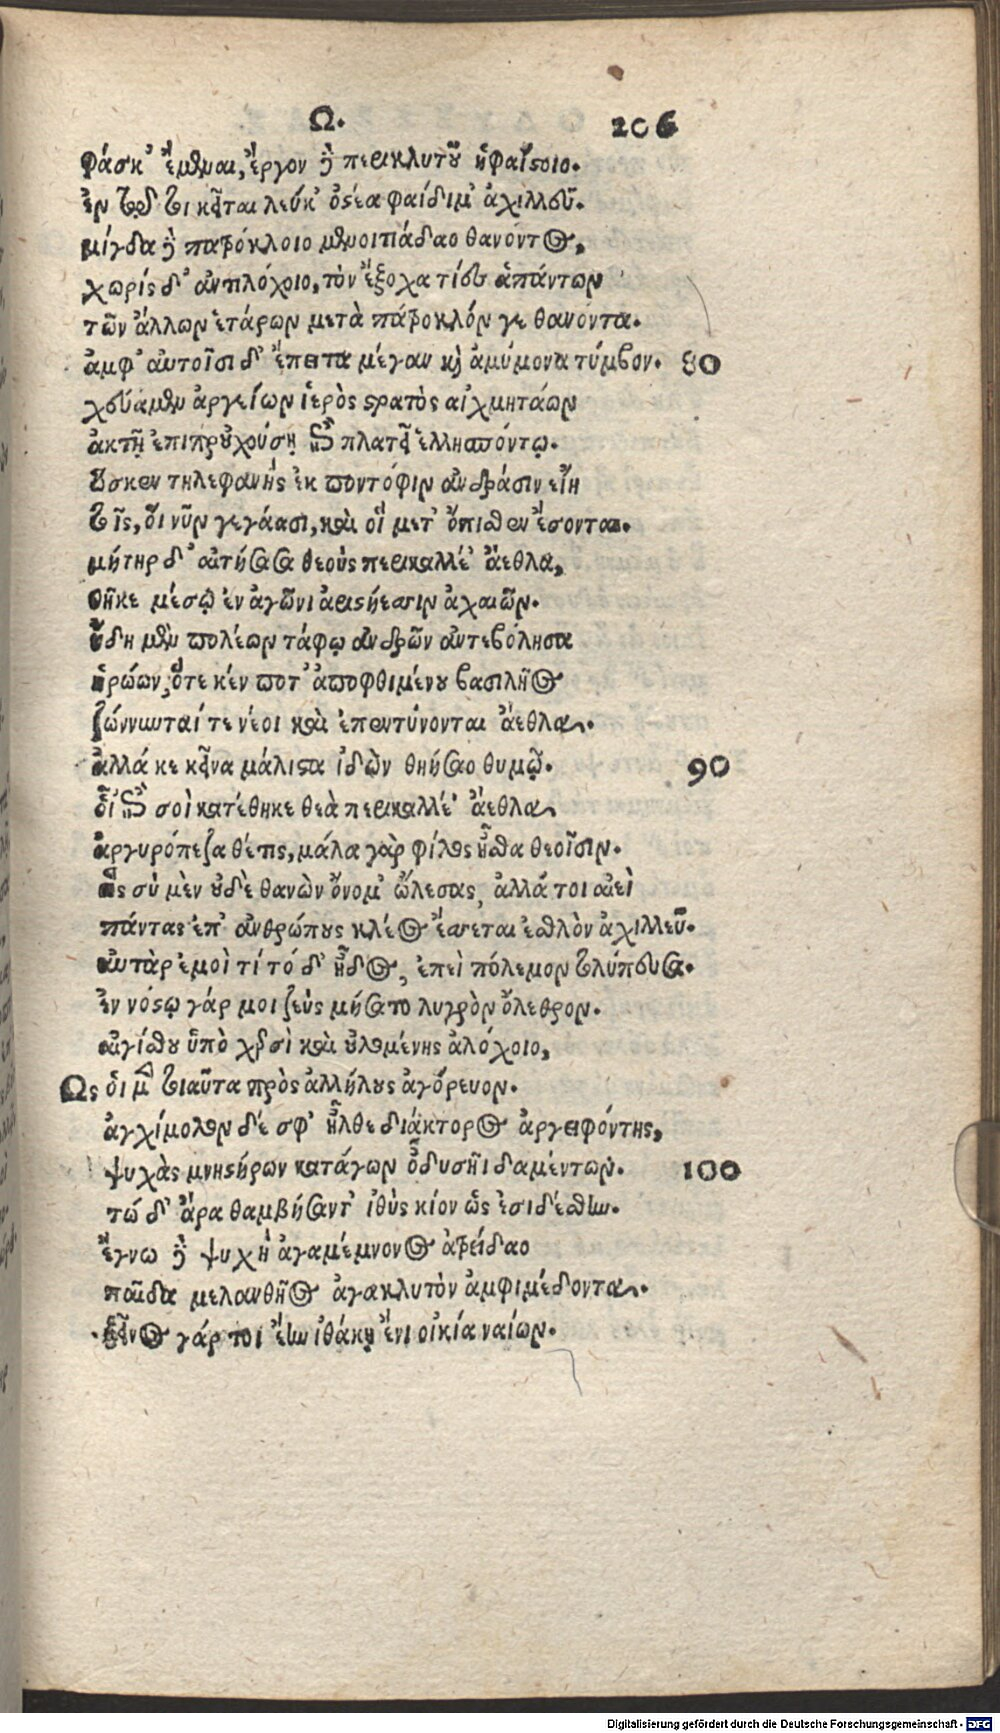 Ω.
206
φάσκ' ἔμμεναι, ἔργον δὲ περικλυτοῦ ἡφαίστοιο.
ἐν τῷ τοι κεῖται λεύκ' ὀστέα φαίδιμ' ἀχιλλεῦ.
μίγδα δὲ πατρόκλοιο μενοιτιάδαο θανόντος,
χωρίς δ' ἀντιλόχοιο, τὸν ἔξοχα τίες ἁπάντων
τῶν ἄλλων ἑτάρων μετὰ πάτροκλόν γε θανόντα.
ἀμφ' αὐτοῖσι δ' ἔπειτα μέγαν καὶ ἀμύμονα τύμβον. 80
χεύαμεν ἀργείων ἱερὸς στρατὸς αἰχμητάων
ἀκτῇ ἐπιπρουχούσῃ ἐπὶ πλατεῖ ἑλλησπόντῳ.
ὥς κεν τηλεφανὴς ἐκ ποντόφιν ἀνδράσιν εἴη
τοῖς, οἳ νῦν γεγάασι, καὶ οἳ μετ' ὄπισθεν ἔσονται.
μήτηρ δ' αἰτήσασα θεοὺς περικαλλέ' ἄεθλα,
θῆκε μέσῳ ἐν ἀγῶνι ἀριστήεσσιν ἀχαιῶν.
ἤδη μὲν πολέων τάφῳ ἀνδρῶν ἀντεβόλησα
ἡρώων, ὅτε κέν ποτ' ἀποφθιμένου βασιλῆος
ζώννυνταί τε νέοι καὶ ἐπεντύνονται ἄεθλα.
ἀλλά κε κεῖνα μάλιστα ἰδὼν θηήσαο θυμῷ. 90
οἷ' ἐπὶ σοὶ κατέθηκε θεὰ περικαλλέ' ἄεθλα
ἀργυρόπεζα θέτις, μάλα γὰρ φίλος ἦσθα θεοῖσιν.
ὣς σὺ μὲν οὐδὲ θανὼν ὄνομ' ὤλεσας, ἀλλά τοι αἰεὶ
πάντας ἐπ' ἀνθρώπους κλέος ἔσσεται ἐσθλὸν ἀχιλλεῦ.
αὐτὰρ ἐμοὶ τί τό δ' ἦδος, ἐπεὶ πόλεμον τολύπευσα.
ἐν νόστῳ γάρ μοι ζεὺς μήσατο λυγρὸν ὄλεθρον.
αἰγίσθου ὑπὸ χερσὶ καὶ οὐλομένης ἀλόχοιο,
Ως οἱ μὲν τοιαῦτα πρὸς ἀλλήλους ἀγόρευον.
ἀγχίμολον δέ σφ' ἦλθε διάκτορος ἀργειφόντης,
ψυχὰς μνηστήρων κατάγων ὀδυσῆι δαμέντων. 100
τώ δ' ἄρα θαμβήσαντ' ἰθὺς κίον ὡς ἐσιδέσθην.
ἔγνω δὲ ψυχὴ ἀγαμέμνονος ἀτρείδαο
παῖδα μελανθῆος ἀγακλυτὸν ἀμφιμέδοντα.
ξεῖνος γάρ τοι ἔην ἰθάκῃ ἔνι οἰκία ναίων.
Digitalisierung gefördert durch die Deutsche Forschungsgemeinschaft - DFG